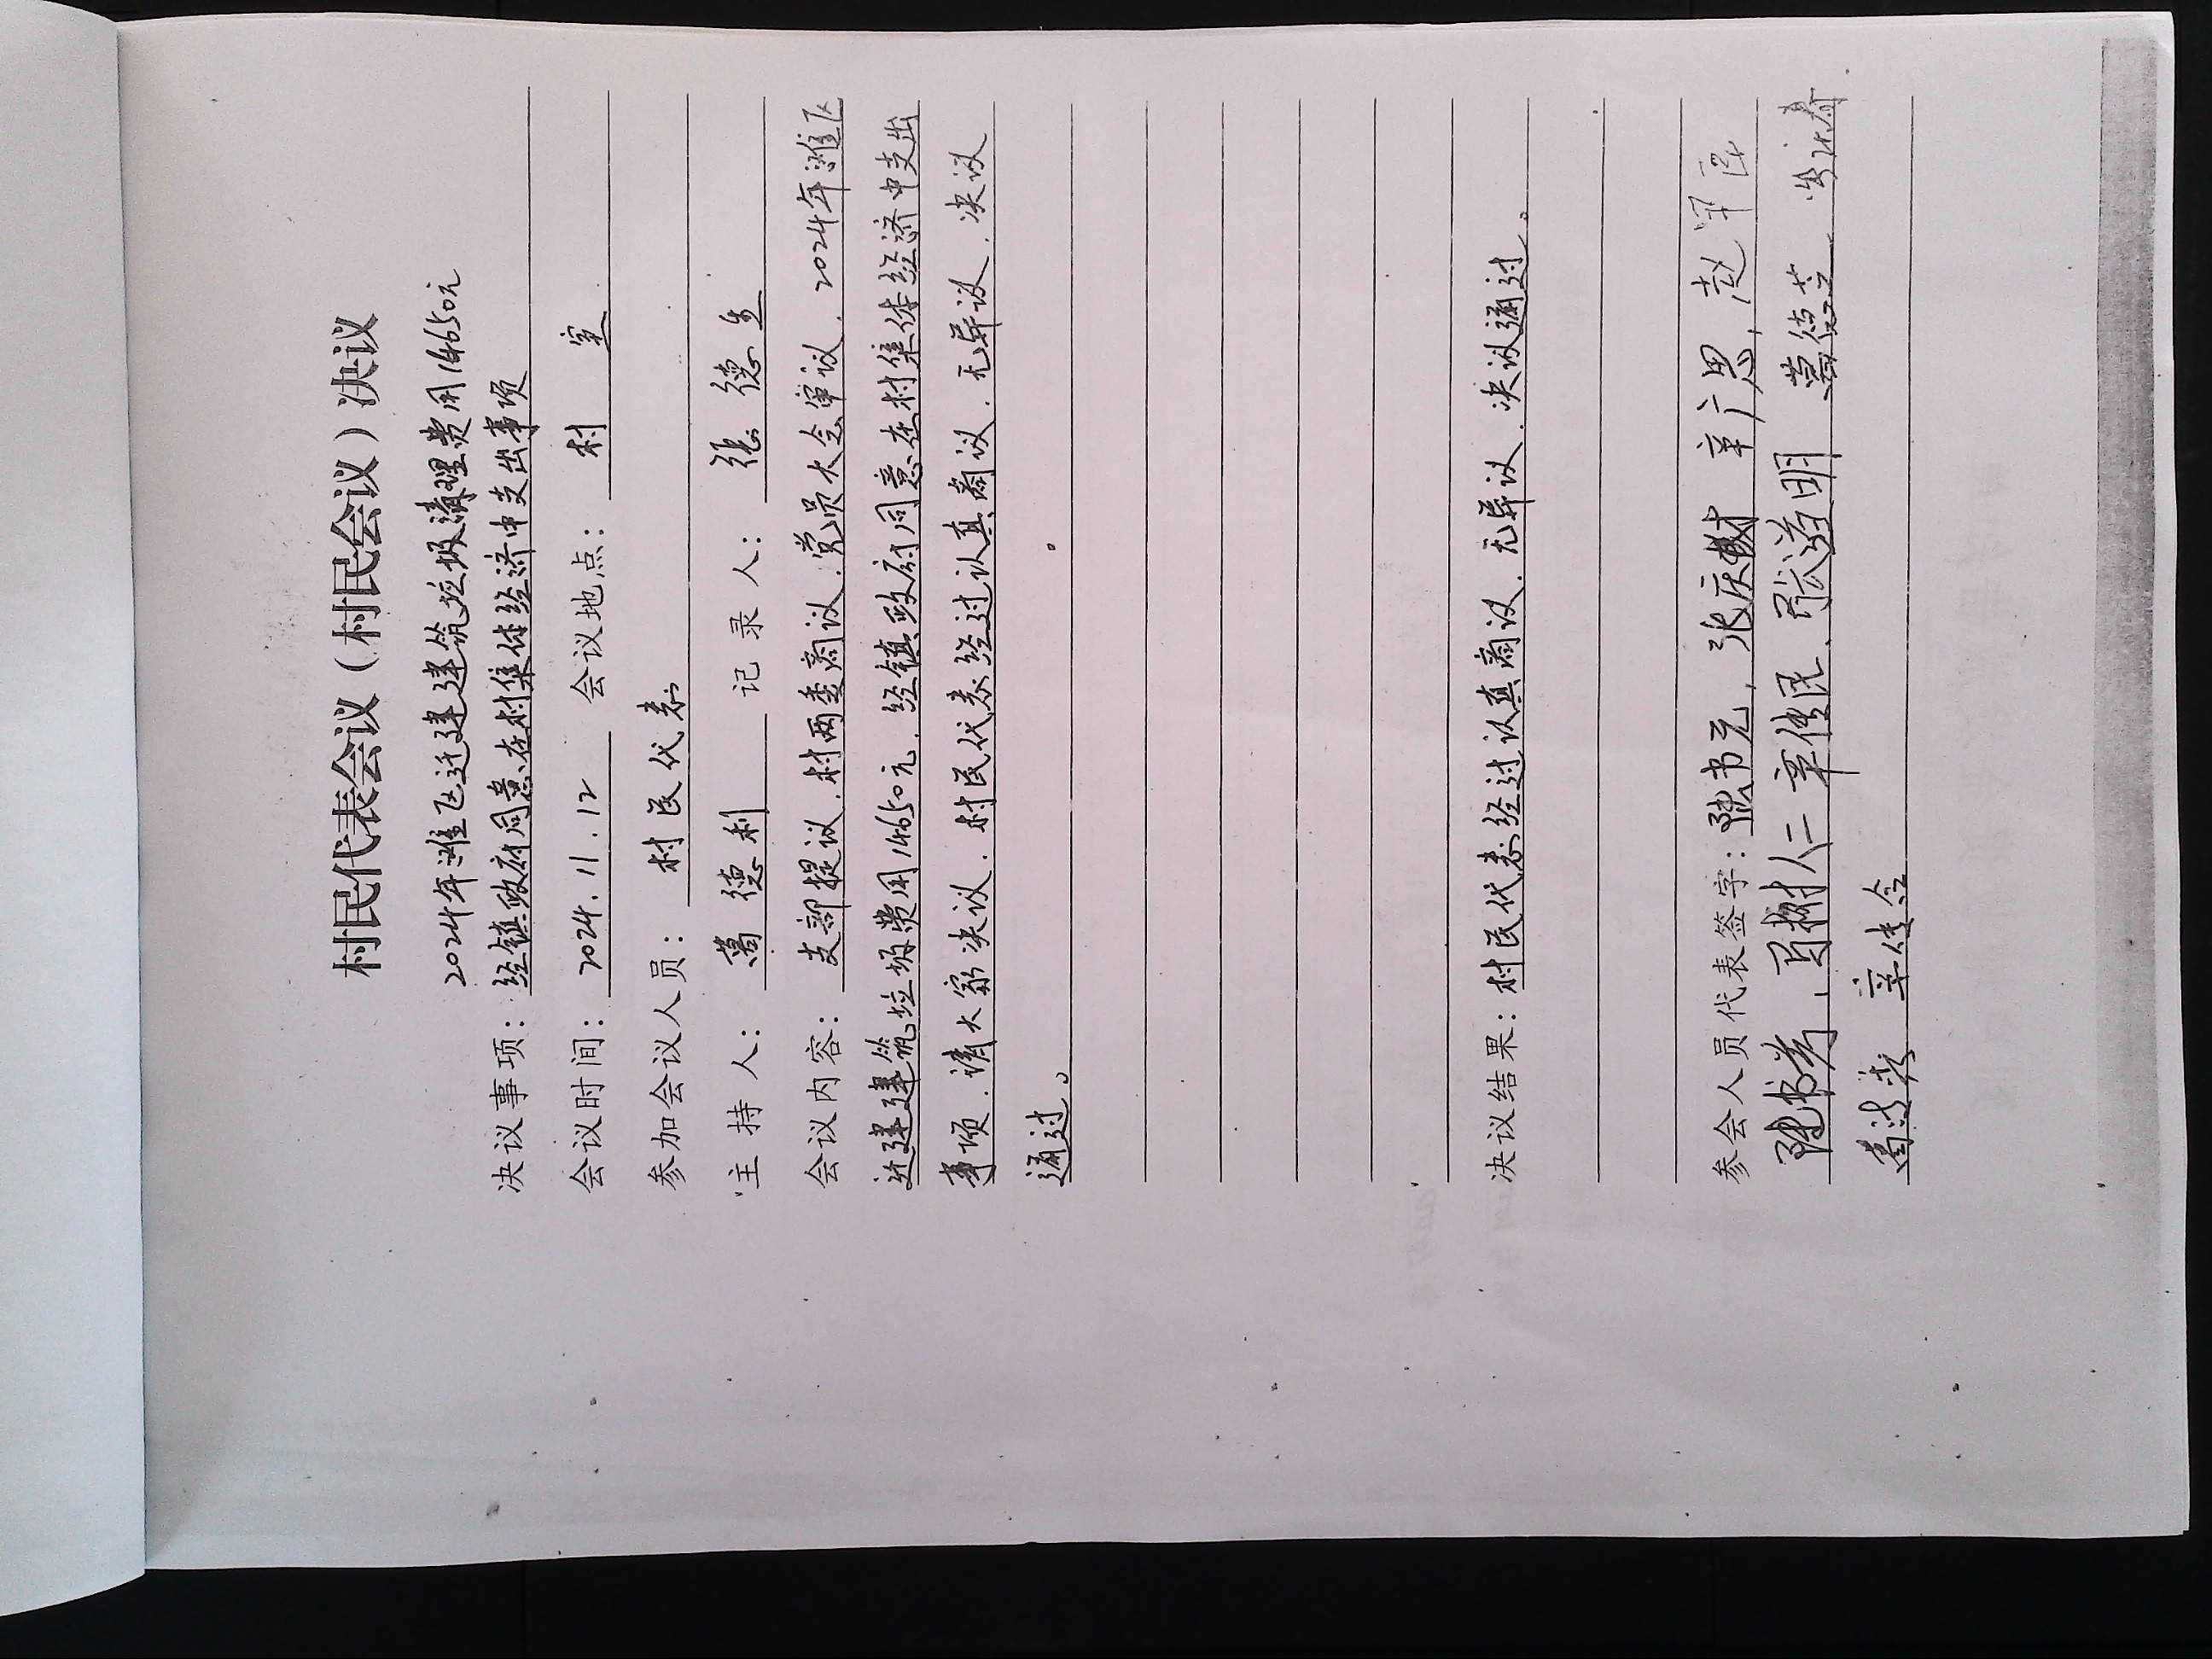 村民代表会议（村民会议）决议
2024年滩区迁建建筑垃圾清理费用14650元
决议事项：经镇政府同意在村集体经济中支出事项
会议时间：2024.11.12 会议地点：村室
参加会议人员：村民代表
主持人：葛德利 记录人：张德生
会议内容：支部提议，村两委商议，党员大会审议，2024年滩区
迁建建筑垃圾费用14650元，经镇政府同意在村集体经济中支出
事项，请大家决议，村民代表经过认真商议，无异议，决议
通过。
决议结果：村民代表经过认真商议，无异议，决议通过。
参会人员代表签字：陈书元，张庆树 辛广思，赵
陈书芳，肖树人二辛传民，张道明 葛德芝
辛传合